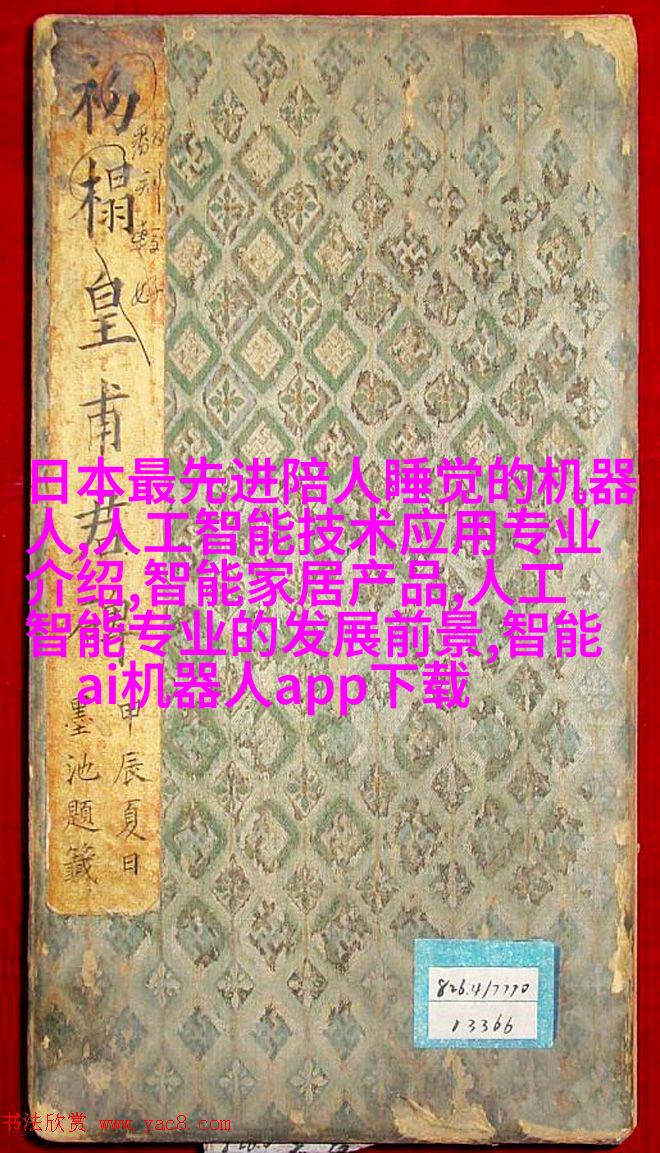 初榻皇甫君碑
翻刻較好
甲辰夏日
墨池題籤
日本最先进陪人睡觉的机器
人,人工智能技术应用专业
介绍,智能家居产品,人工
智能专业的发展前景,智能
ai机器人app下载
826.4/7770
13366
书法欣赏 www.yac8.com